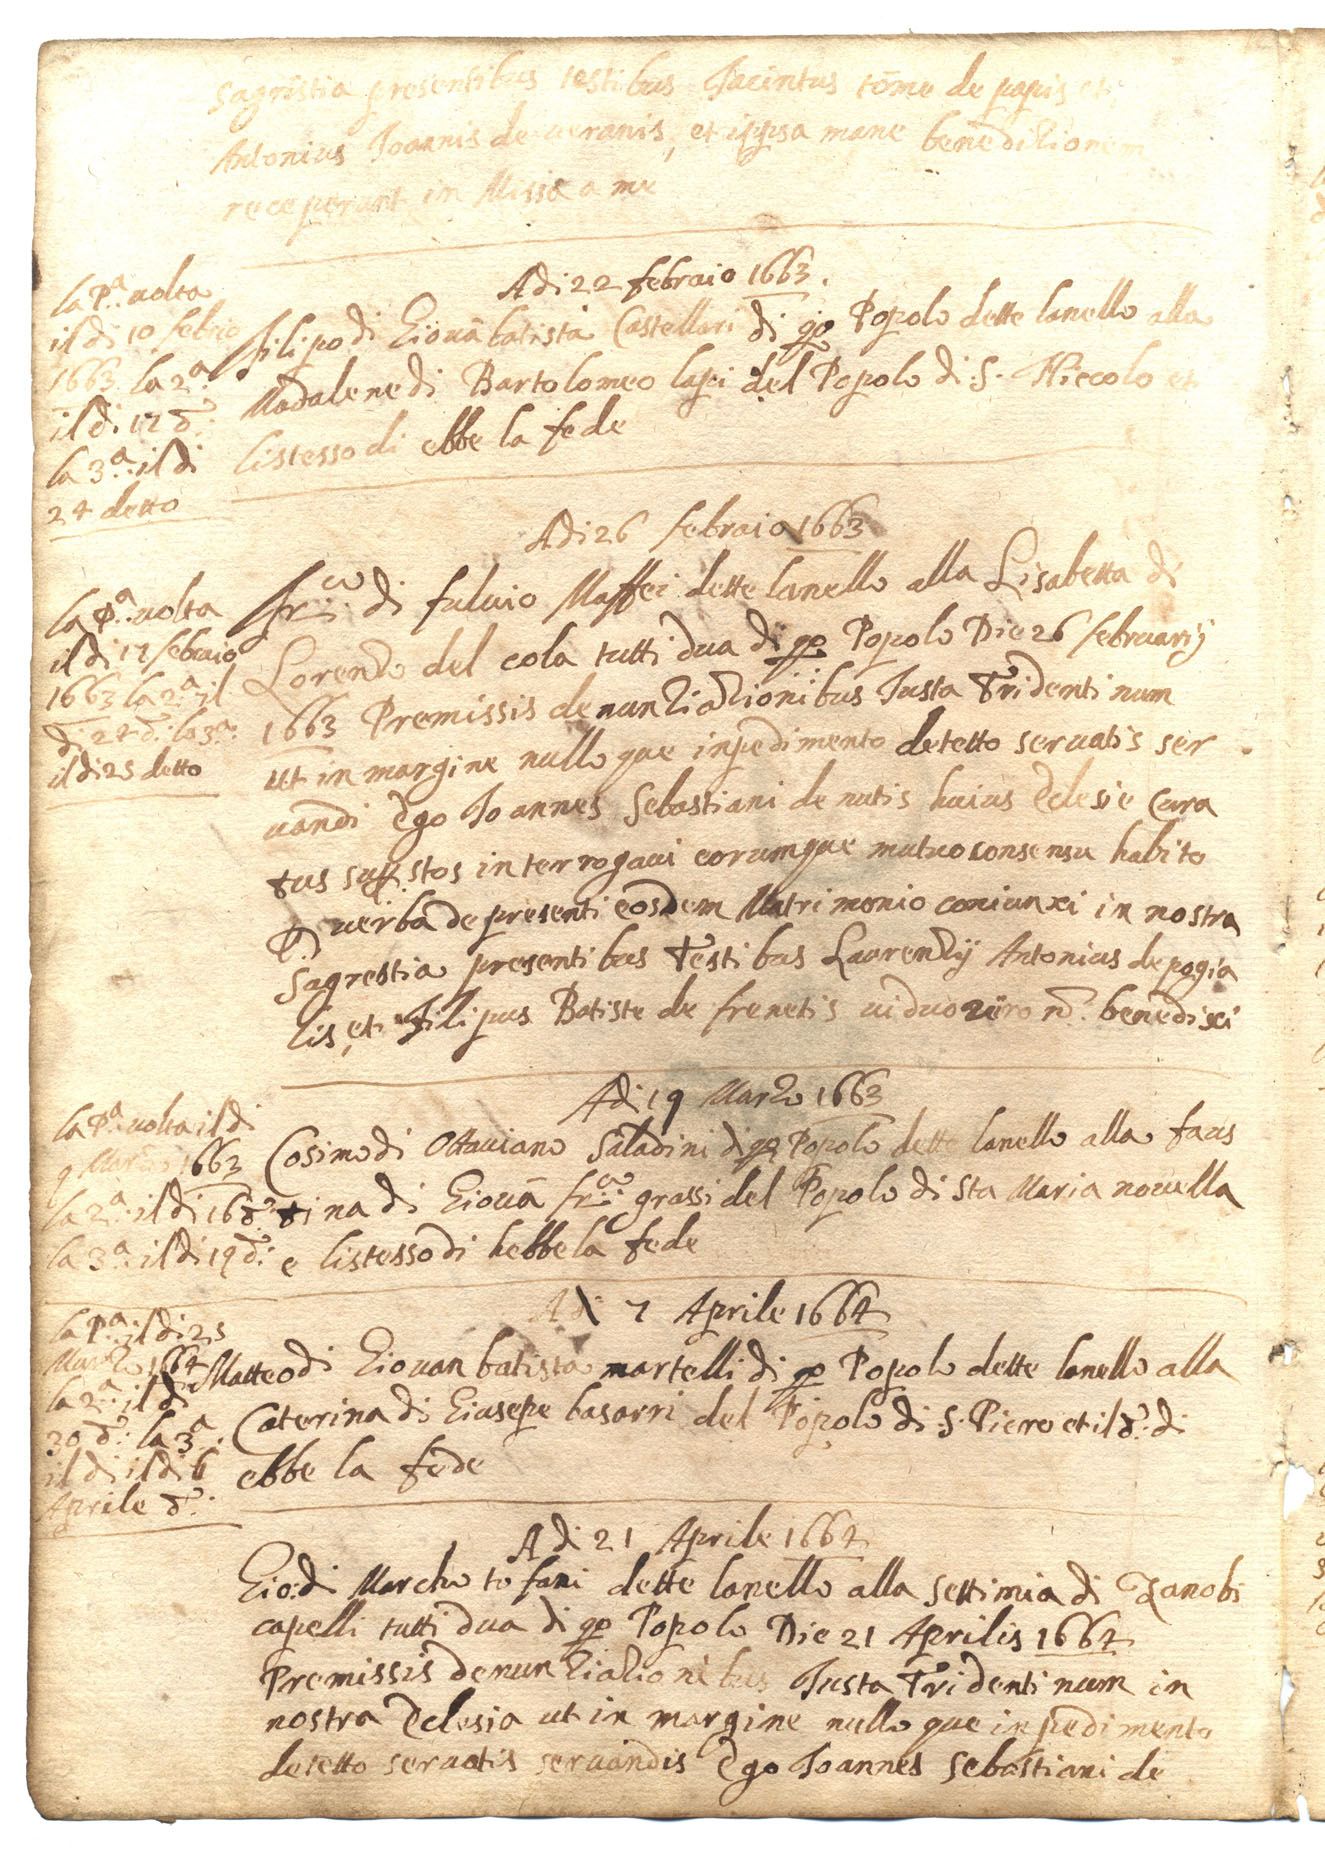 sagristia presentibus testibus Jacintus tome de papis et
Antonius Joannis de veranis, et ippsa mane beneditionem
receperunt in Missa a me
Adi 22 febraio 1663.
la Pa. uolta
il di 10 febraio
1663 la 2a.
il di 17 d.
la 3a. il di
24 detto
filipo di Giouãbatista Castellari di qo Popolo dette lanello alla
Madalene di Bartolomeo lapi del Popolo di .S. Niccolo et
listesso di ebbe la fede
Adi 26 febraio 1663
la Pa. uolta
il di 17 febraio
1663 la 2a. il
di 24 d. la 3a.
il di 25 detto
frco. di fuluio Maffei dette lanello alla Lisabetta di
Lorenzo del cola tutti dua di qo Popolo Die 26 februarij
1663 Premissis denunziazionibus Justa Tridentinum
ut in margine nulloque inpedimento detetto seruatis ser
uandi Ego Joannes Sebastiani de nutis huius Eclesie Cura
tus supstos interrogaui eorumque mutuo consensu habito
P uerba de presenti eosdem Matrimonio coniunxi in nostra
Sagrestia presentibus Testibus Laurenzij Antonius de pogia
lis, et filipus Batiste de frenetis uiduo uiro n. benedixi
Adi 19 Marzo 1663
la Pa. uolta il di
9 Marzo 1663
la 2a. il di 16 d.
la 3a. il di 19 d.
Cosimo di Ottauiano Saladini di qo Popolo dette lanello alla faus
tina di Giouã frco. grassi del Popolo di Sta Maria nouella
e listesso di hebbe la fede
Adi 7 Aprile 1664
la Pa. il di 25
Marzo 1664
la 2a. il di
30 d. la 3a.
il di il di 6
Aprile d.
Matteo di Giouan batista martelli di qo Popolo dette lanello alla
Caterina di Giusepe basarri del Popolo di .S. Piero et il d. di
ebbe la fede
Adi 21 Aprile 1664
Gio: di Marcho tofani dette lanello alla settimia di Zanobi
capelli tutti dua di qo Popolo Die 21 Aprilis 1664
Premissis denunziazionibus Justa Tridentinum in
nostra Eclesia ut in margine nulloque inpedimento
detetto seruatis seruandis Ego Joannes Sebastiani de